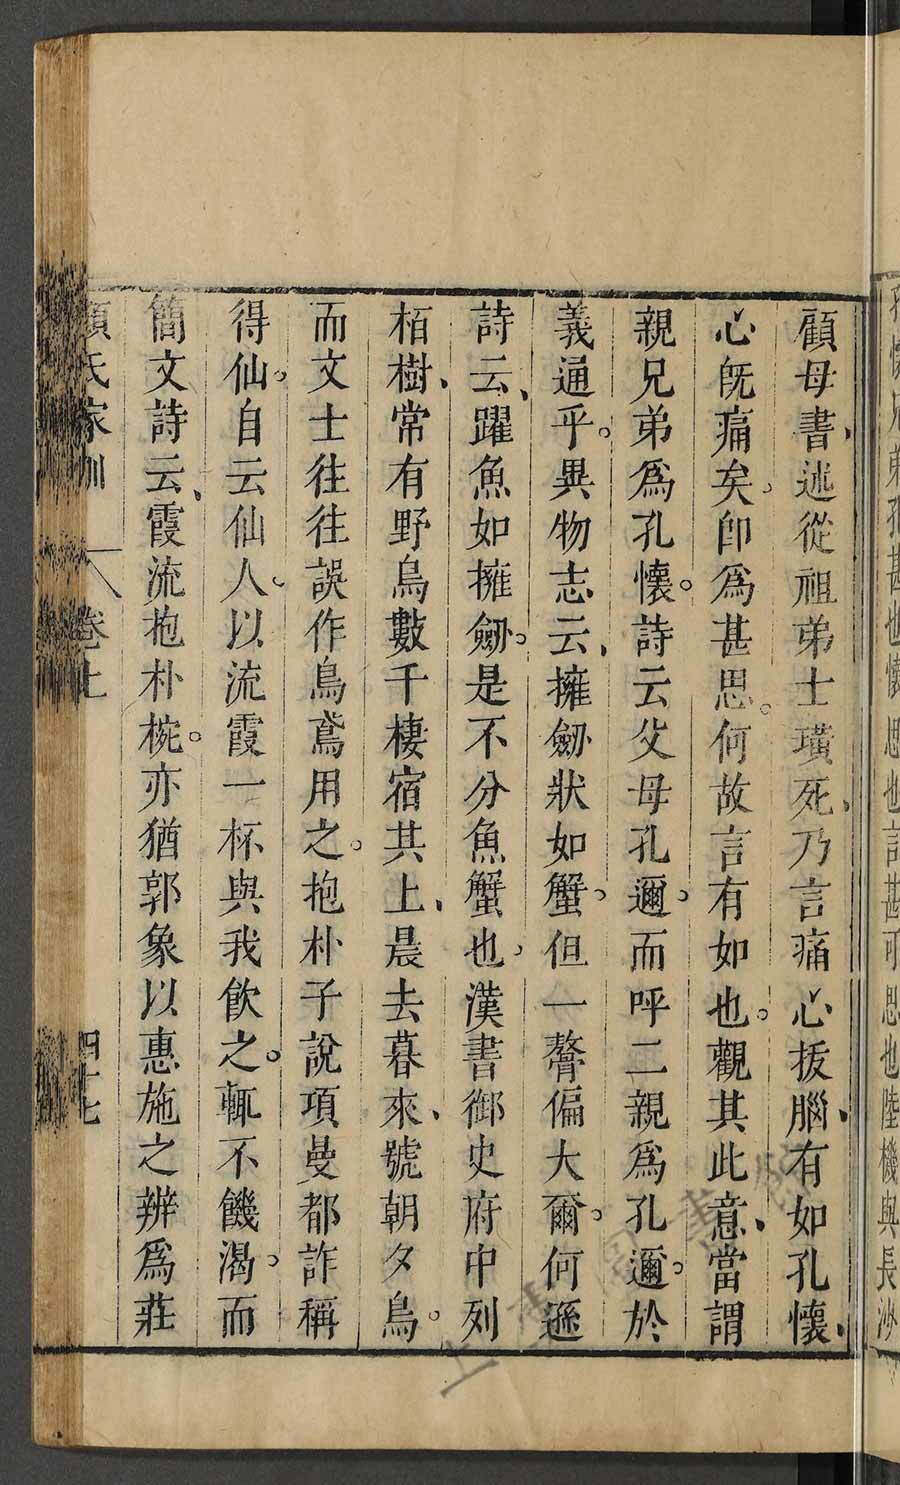 孔懷兄弟孔甚也懷思也言甚可思也陸機與長沙
顧母書、述從祖弟士璜死、乃言痛心拔腦、有如孔懷、
心旣痛矣。卽爲甚思。何故言有如也。觀其此意、當謂
親兄弟爲孔懷。詩云父母孔邇、而呼二親爲孔邇。於
義通乎。異物志云、擁劒狀如蟹、但一螯偏大爾。何遜
詩云、躍魚如擁劒。是不分魚蟹也、漢書御史府中列
栢樹、常有野鳥數千棲宿其上、晨去暮來、號朝夕鳥。
而文士往往誤作鳥鳶用之。抱朴子說項曼都詐稱
得仙。自云仙人、以流霞一杯與我飲之。輒不饑渴。而
簡文詩云、霞流抱朴椀。亦猶郭象以惠施之辨爲莊
顏氏家訓 卷上 四十七